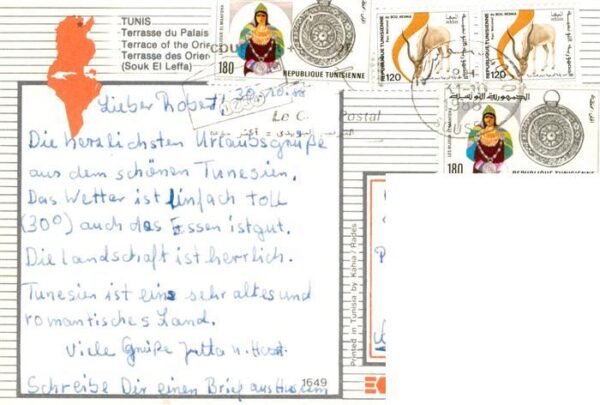 TUNIS
Terrasse du Palais
Terrace of the Orie
Terrasse des Orien
(Souk El Leffa)
180
REPUBLIQUE TUNISIENNE
REPUBLIQUE TUNISIENNE
120
REPUBLIQUE TUNISIENNE
120
الجمهورية التونسية
180
REPUBLIQUE TUNISIENNE
1988
SOUSSE
Postal
Lieber Robert! 30.10.88
Die herrlichsten Urlaubsgrüße
aus dem schönen Tunesien.
Das Wetter ist einfach toll
(30°) auch das Essen ist gut.
Die Landschaft ist herrlich.
Tunesien ist ein sehr altes und
romantisches Land.
Viele Grüße Jutta u. Horst.
Schreibe Dir einen Brief aus
1649
Printed in Tunisia by Kahia / Rades